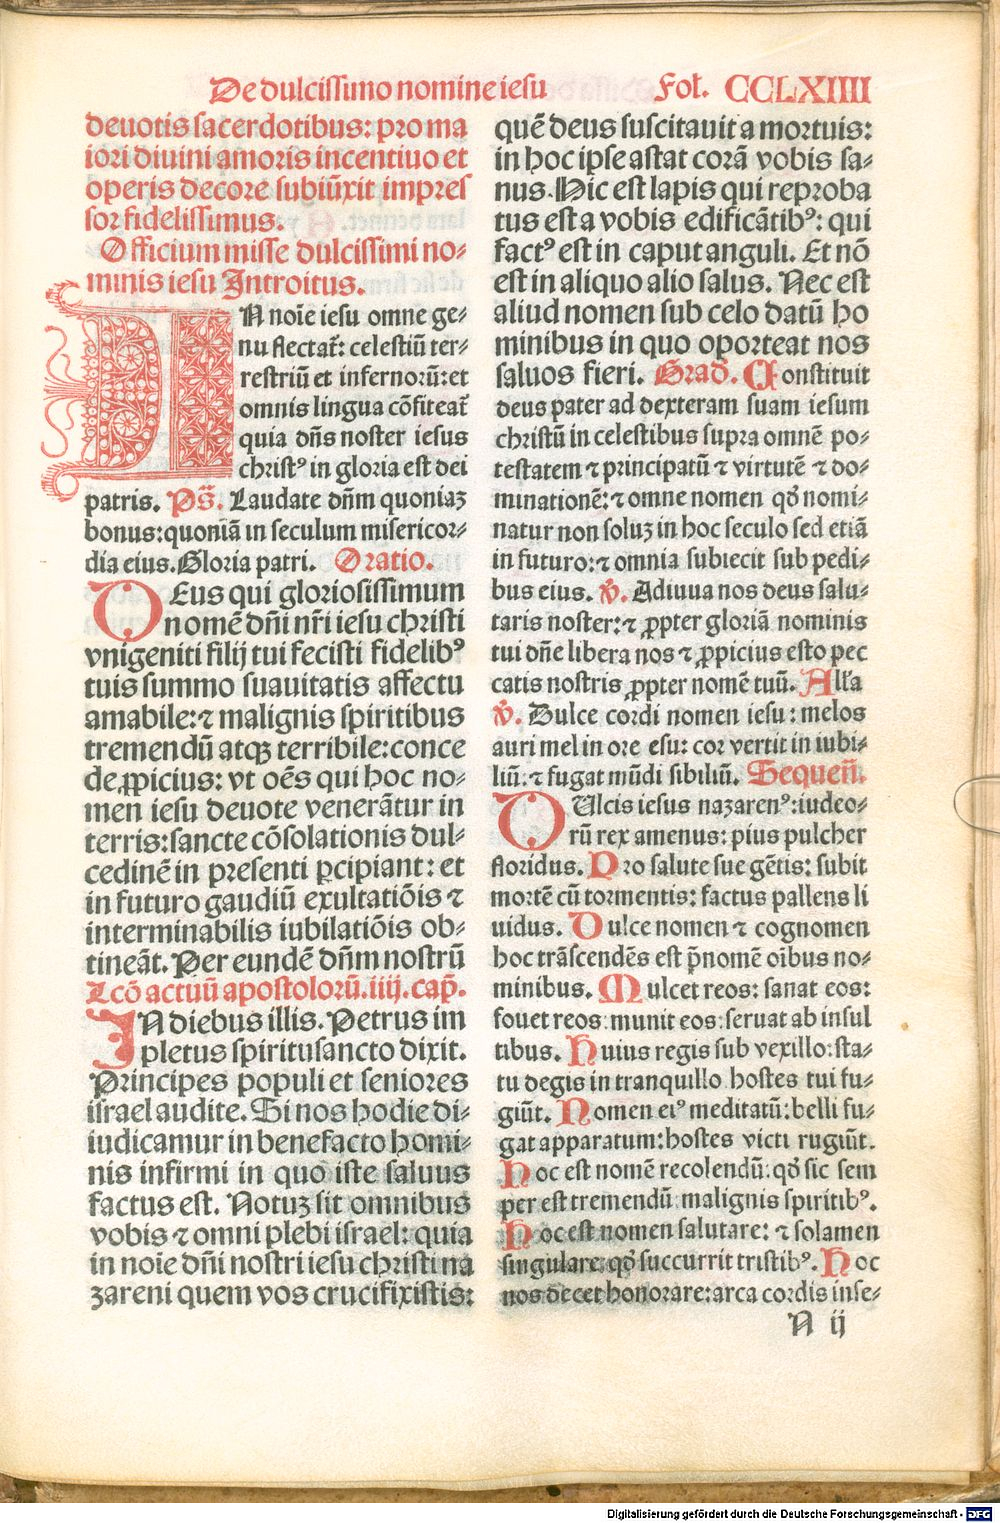 De dulcissimo nomine iesu Fol. CCLXIIII
deuotis sacerdotibus: pro ma
iori diuini amoris incentiuo et
operis decore subiūxit impres
sor fidelissimus.
Officium misse dulcissimi no⸗
minis iesu Introitus.
IN noīe iesu omne ge⸗
nu flectat᷑: celestiū ter⸗
restriū et infernorū: et
omnis lingua cōfiteat᷑
quia dn̄s noster iesus
christꝰ in gloria est dei
patris. Ps̄. Laudate dn̄m quoniaꝫ
bonus: quoniā in seculum misericor⸗
dia eius. Gloria patri. Oratio.
DEus qui gloriosissimum
nomē dn̄i nr̄i iesu christi
vnigeniti filij tui fecisti fidelibꝰ
tuis summo suauitatis affectu
amabile: ⁊ malignis spiritibus
tremendū atqꝫ terribile: conce
de ꝓpicius: vt oēs qui hoc no⸗
men iesu deuote venerātur in
terris: sancte cōsolationis dul⸗
cedinē in presenti ꝑcipiant: et
in futuro gaudiū exultatiōis ⁊
interminabilis iubilatiōis ob⸗
tineāt. Per eundē dn̄m nostrū
Lcō actuū apostolorū. iiij. cap̄.
IN diebus illis. Petrus im
pletus spiritusancto dixit.
Principes populi et seniores
israel audite. Si nos hodie di⸗
iudicamur in benefacto homi⸗
nis infirmi in quo iste saluus
factus est. Notuꝫ sit omnibus
vobis ⁊ omni plebi israel: quia
in noīe dn̄i nostri iesu christi na
zareni quem vos crucifixistis:
quē deus suscitauit a mortuis:
in hoc ipse astat corā vobis sa⸗
nus. Hic est lapis qui reproba
tus est a vobis edificātibꝰ: qui
factꝰ est in caput anguli. Et nō
est in aliquo alio salus. Nec est
aliud nomen sub celo datū ho
minibus in quo oporteat nos
saluos fieri. Grad̄. Constituit
deus pater ad dexteram suam iesum
christū in celestibus supra omnē po⸗
testatem ⁊ principatū ⁊ virtutē ⁊ do⸗
minationē: ⁊ omne nomen qd̄ nomi⸗
natur non soluꝫ in hoc seculo sed etiā
in futuro: ⁊ omnia subiecit sub pedi⸗
bus eius. ℣. Adiuua nos deus salu⸗
taris noster: ⁊ ꝓpter gloriā nominis
tui dn̄e libera nos ⁊ ꝓpicius esto pec
catis nostris ꝓpter nomē tuū. Alľa
℣. Dulce cordi nomen iesu: melos
auri mel in ore esu: cor vertit in iubi⸗
liū: ⁊ fugat mūdi sibiliū. Sequen̄.
DUlcis iesus nazarenꝰ: iudeo⸗
rū rex amenus: pius pulcher
floridus. Pro salute sue gētis: subit
mortē cū tormentis: factus pallens li
uidus. Dulce nomen ⁊ cognomen
hoc trāscendēs est p̄nomē oībus no⸗
minibus. Mulcet reos: sanat eos:
fouet reos: munit eos: seruat ab insul
tibus. Huius regis sub vexillo: sta⸗
tu degis in tranquillo hostes tui fu⸗
giūt. Nomen eiꝰ meditatū: belli fu⸗
gat apparatum: hostes victi rugiūt.
Hoc est nomē recolendū: qd̄ sic sem
per est tremendū malignis spiritibꝰ.
Hoc est nomen salutare: ⁊ solamen
singulare: qd̄ succurrit tristibꝰ. Hoc
nos decet honorare: arca cordis inse⸗
N ij
Digitalisierung gefördert durch die Deutsche Forschungsgemeinschaft - DFG